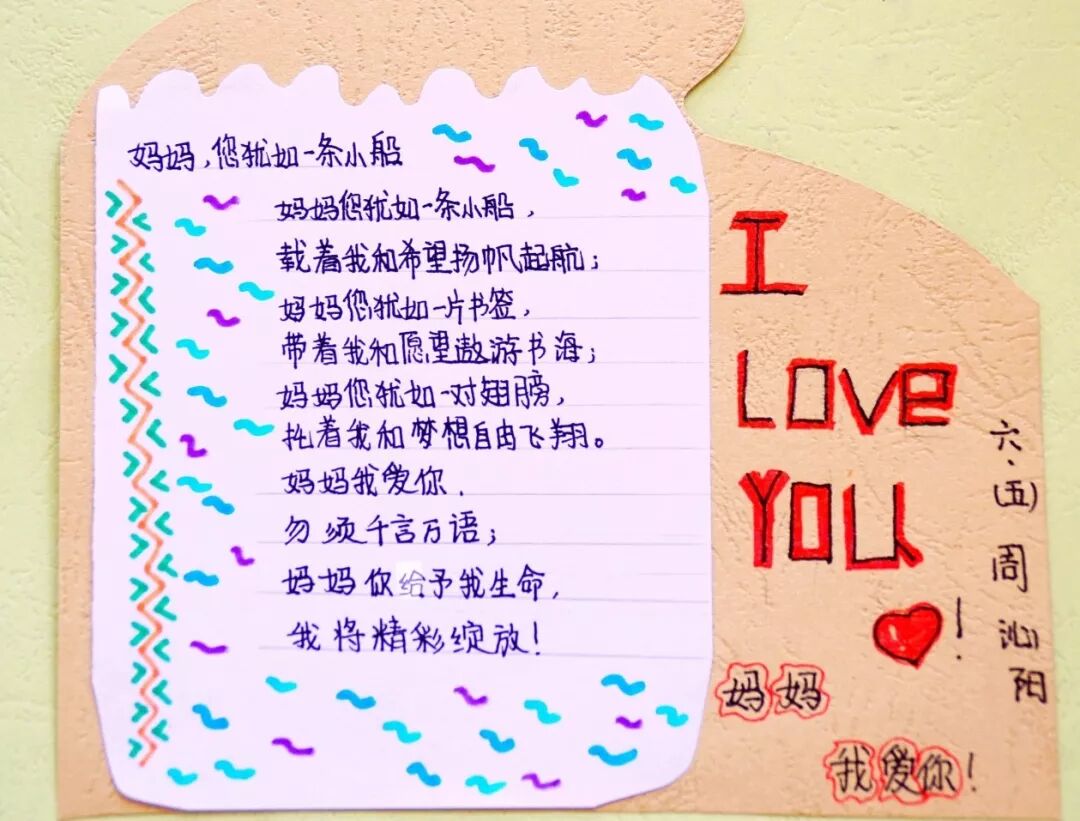 妈妈,您犹如一条小船
妈妈您犹如一条小船,
载着我和希望扬帆起航;
妈妈您犹如一片书签,
带着我和愿望遨游书海;
妈妈您犹如一对翅膀,
托着我和梦想自由飞翔。
妈妈我爱你.
勿须千言万语;
妈妈你给予我生命,
我将精彩绽放!
I
LOVE
YOU
!
妈妈
我爱你!
六.(五)周沁阳